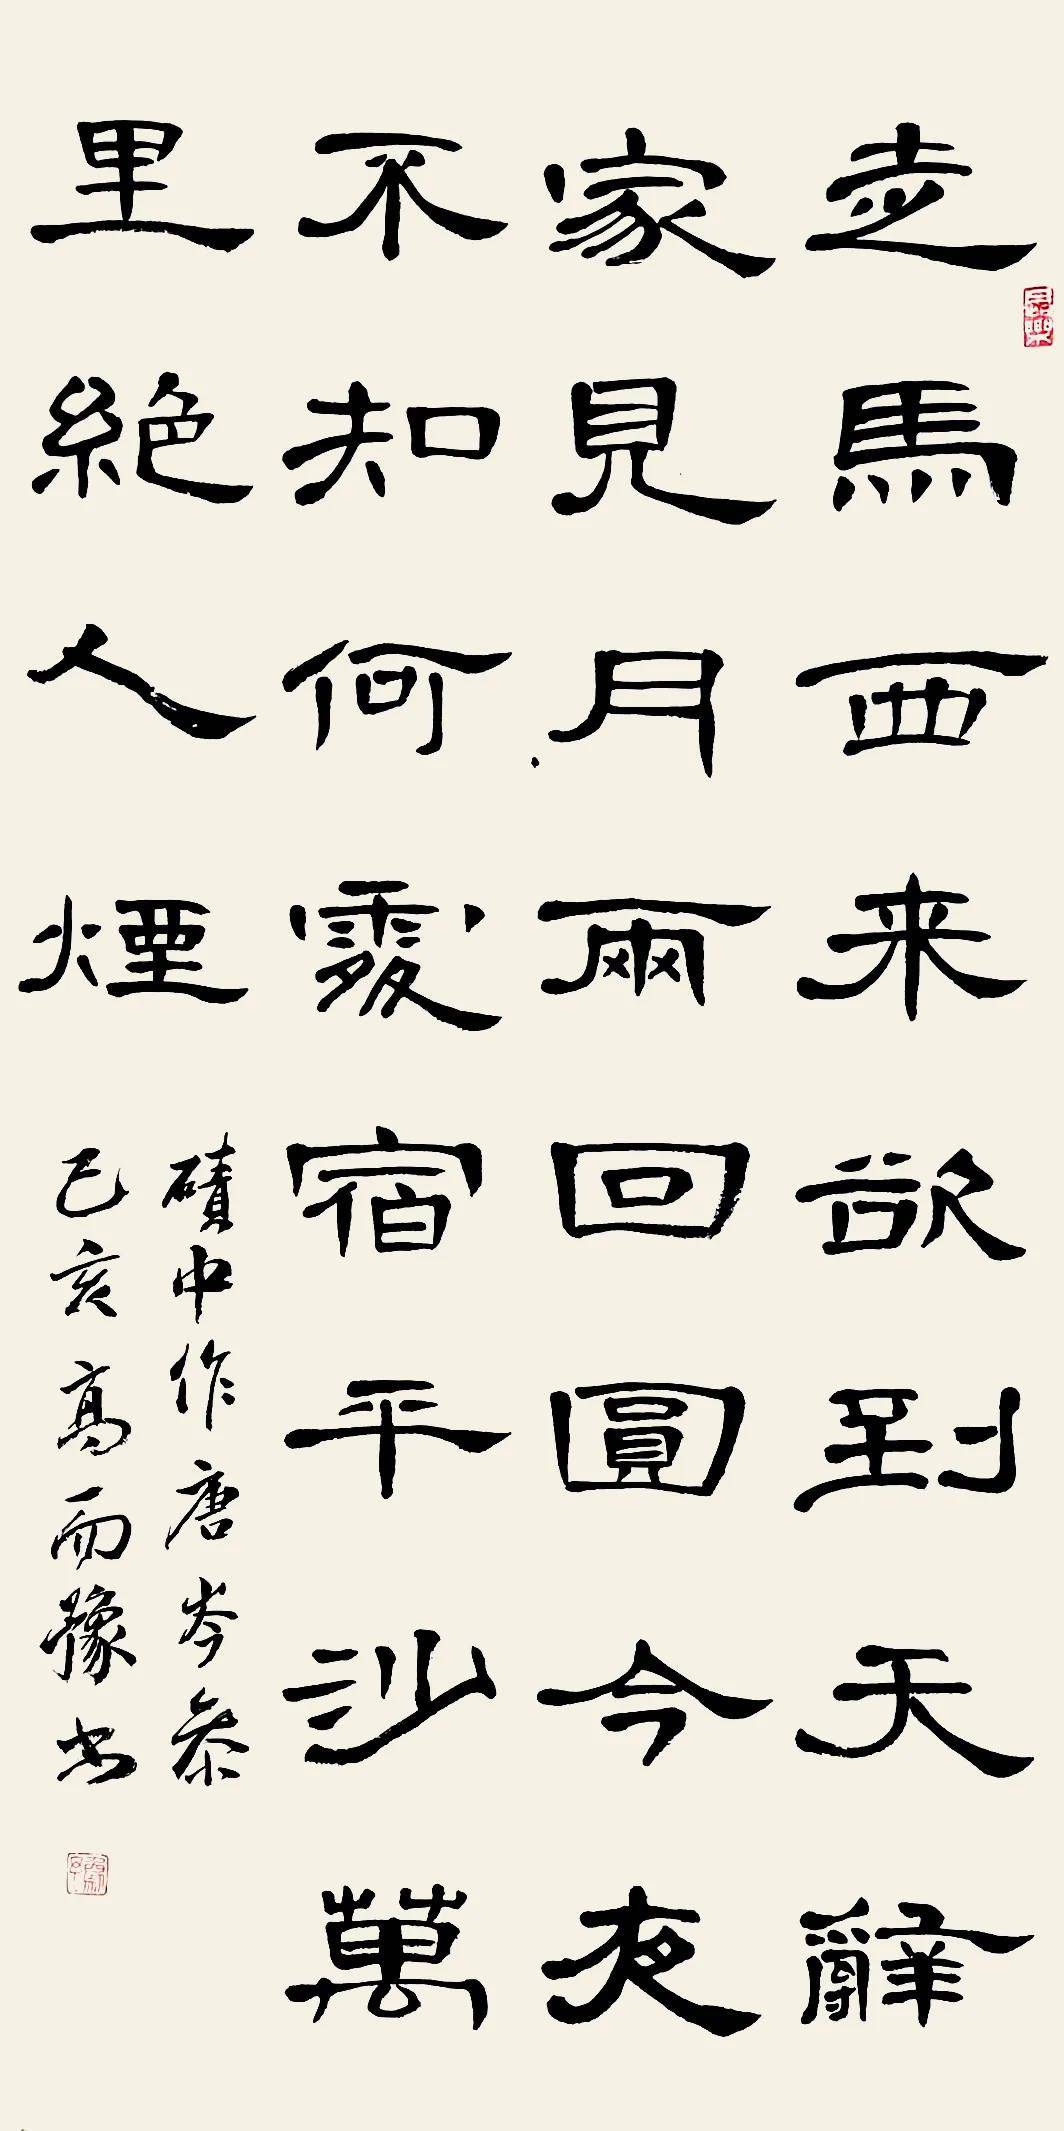 走馬西来欲到天辭
家見月兩回圓今夜
不知何處宿平沙萬
里絶人煙
磧中作唐岑參
己亥高而豫书